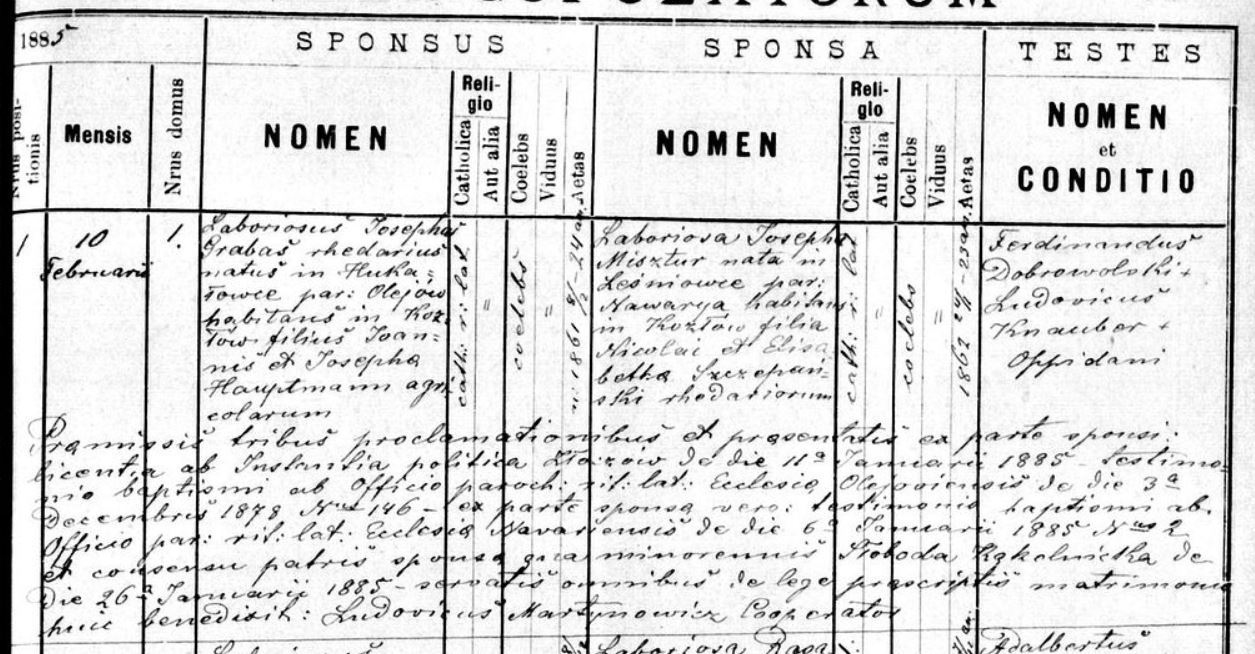 COPULATORUM
1885
SPONSUS
SPONSA
TESTES
Nrus posi-
tionis
Mensis
Nrus domus
NOMEN
Reli-
gio
Catholica
Aut alia
Coelebs
Viduus
Aetas
NOMEN
Reli-
gio
Catholica
Aut alia
Coelebs
Viduus
Aetas
NOMEN
et
CONDITIO
1
10
Februarii
1.
Laboriosus Josephus
Grabas rhedarius
natus in Huka=
łowce par: Olejów
habitans in Koz=
łów filius Joan=
nis et Josepha
Hauptmann agri
colarum
cath: r: lat.
"
coelebs
=
1861 24 an.
Laboriosa Josepha
Misztur nata in
Lesniowce par:
Nawarya habitans
in Kozłów filia
Nicolai et Elisa
betha Szczepan=
ski rhedariorum
cath: r: lat
"
coelebs
=
1862 an.
Ferdinandus
Dobrowolski +
Ludovicus
Knauber +
Oppidani
Pramissis tribus proclamationibus et prasentatis ex parte sponsi:
licentia ab Instantia politica Złoczów de die 11a Januarii 1885 - testimo=
nio baptismi ab Officio paroch: rit: lat: Ecclesia Olejoviensis de die 3a
Decembris 1878 Nro 146 - ex parte sponsa vero: testimonio baptismi ab.
Officio par: rit: lat: Ecclesia Navariensis de die 6a Januarii 1885 2
et consensu patris sponsa qua minorennis Słoboda de
die 26a Januarii 1885 - servatis omnibus de lege prascriptis matrimonio
huic benedixit: Ludovicus Martynowicz Cooperator
Laboriosa Rosa
Adalbertus